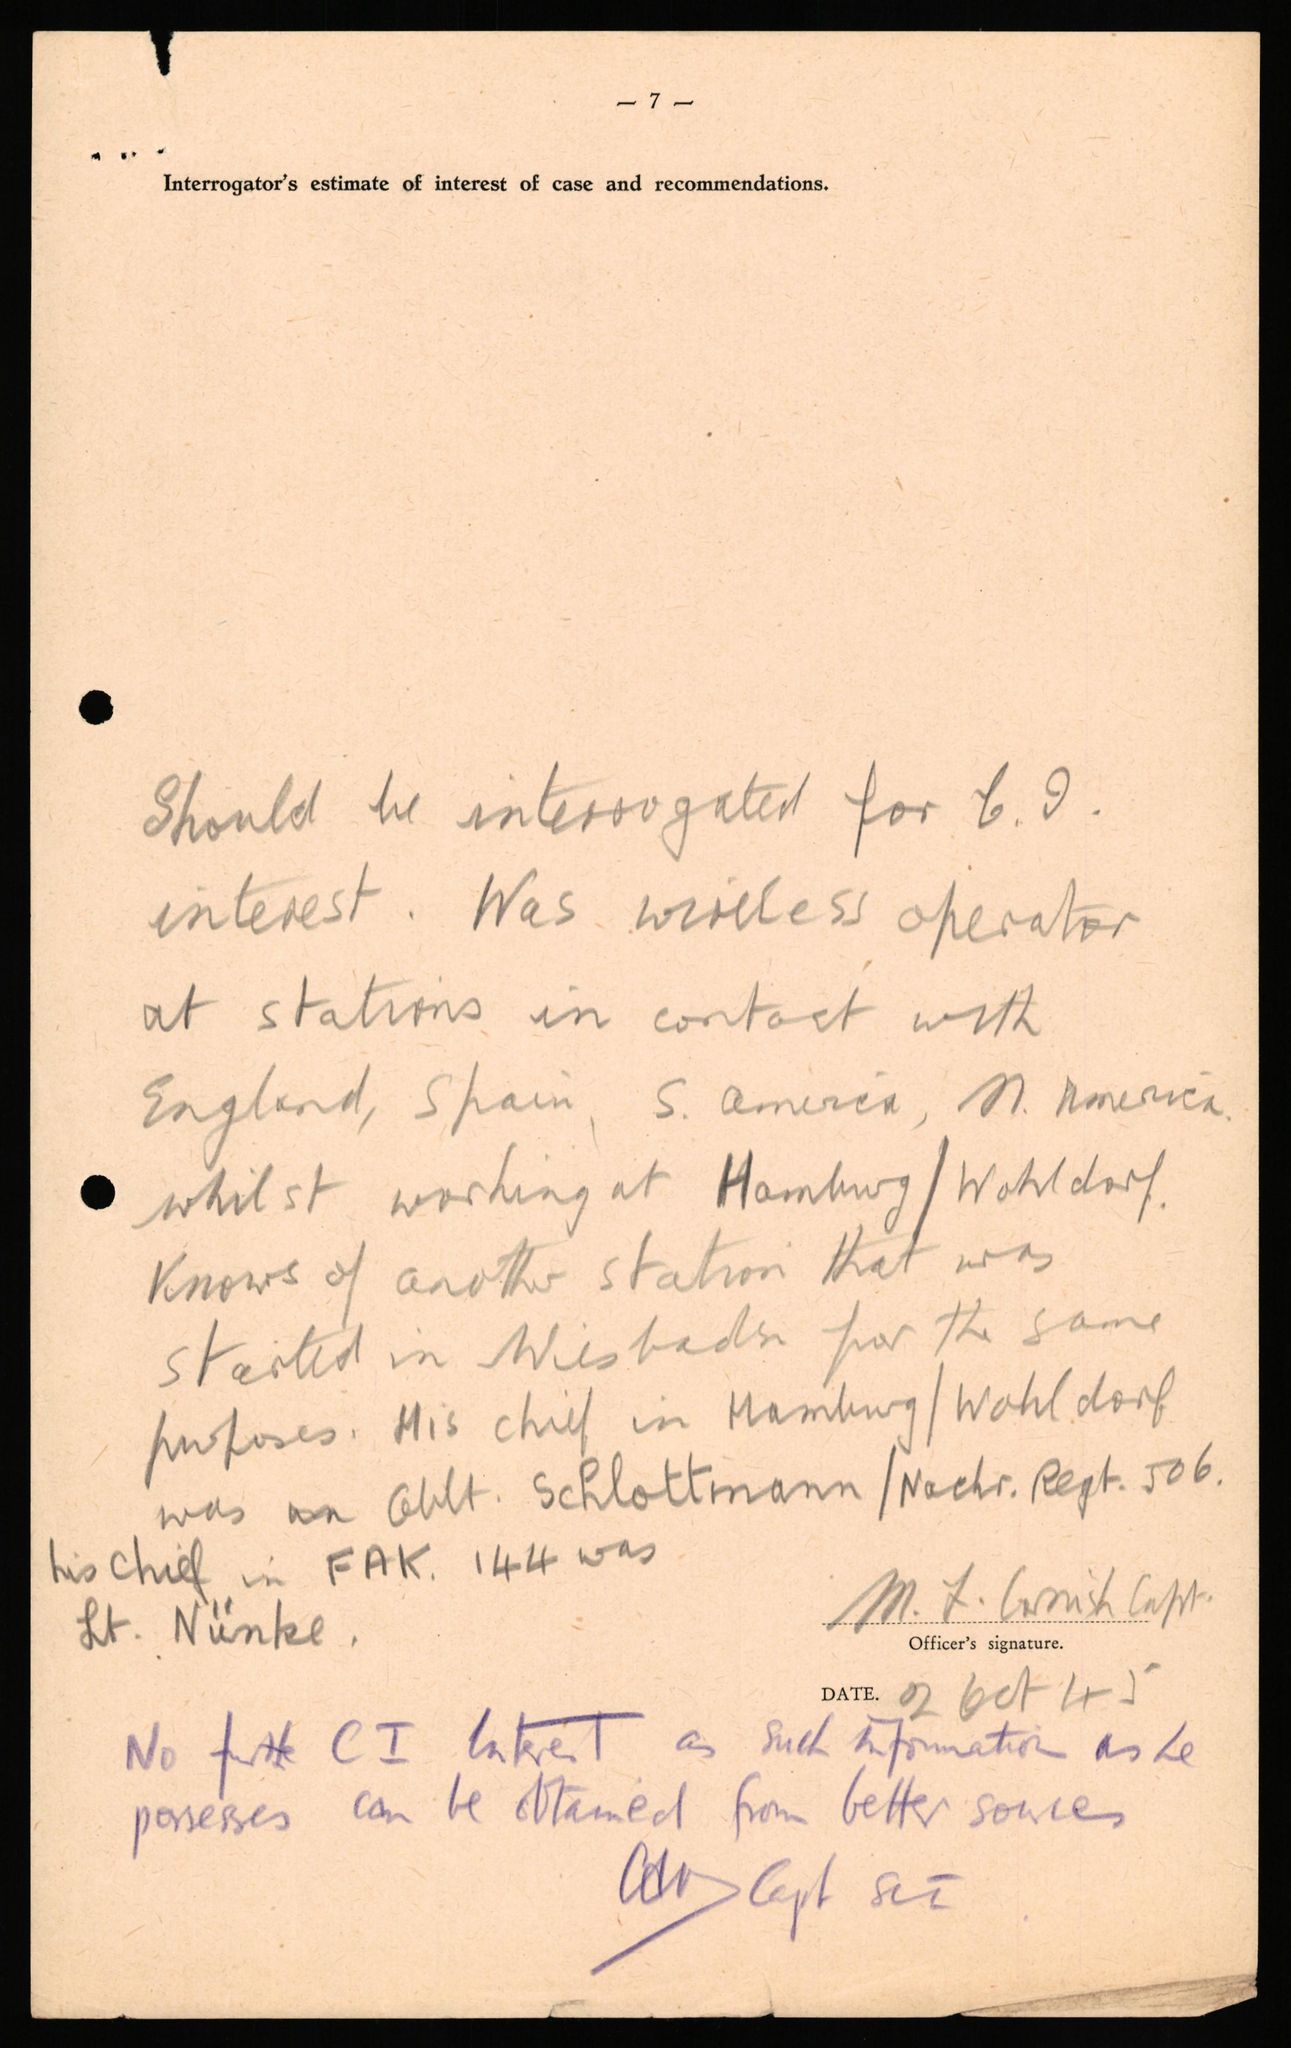 — 7 —
Interrogator's estimate of interest of case and recommendations.
Should be interrogated for C.I.
interest. Was wireless operator
at stations in contact with
England, Spain, S. America, N. America.
whilst working at Hamburg/Wohldorf.
Knows of another station that was
started in Wiesbaden for the same
purposes. His chief in Hamburg/Wohldorf
was an Oblt. Schlottmann/Nachr. Regt. 506.
his chief in FAK. 144 was
Lt. Nünke.
M. F. Cornish Capt.
Officer's signature.
DATE. 2 Oct 45
No furthe CI Interest as such information as he
possesses can be obtained from better sources
Capt